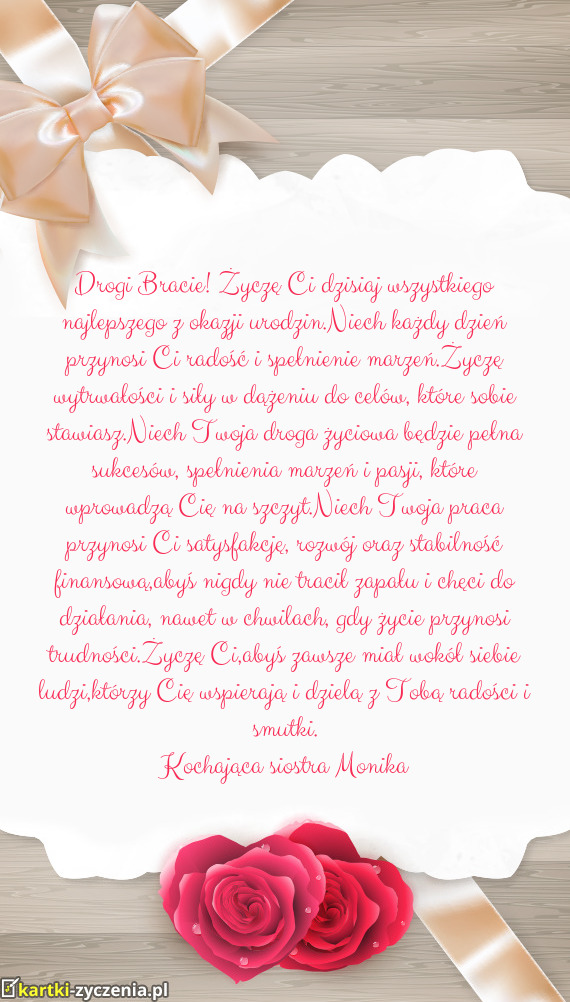 Drogi Bracie! Życzę Ci dzisiaj wszystkiego
najlepszego z okazji urodzin.Niech każdy dzień
przynosi Ci radość i spełnienie marzeń.Życzę
wytrwałości i siły w dążeniu do celów, które sobie
stawiasz.Niech Twoja droga życiowa będzie pełna
sukcesów, spełnienia marzeń i pasji, które
wprowadzą Cię na szczyt.Niech Twoja praca
przynosi Ci satysfakcję, rozwój oraz stabilność
finansową,abyś nigdy nie tracił zapału i chęci do
działania, nawet w chwilach, gdy życie przynosi
trudności.Życzę Ci,abyś zawsze miał wokół siebie
ludzi,którzy Cię wspierają i dzielą z Tobą radości i
smutki.
Kochająca siostra Monika
kartki-zyczenia.pl